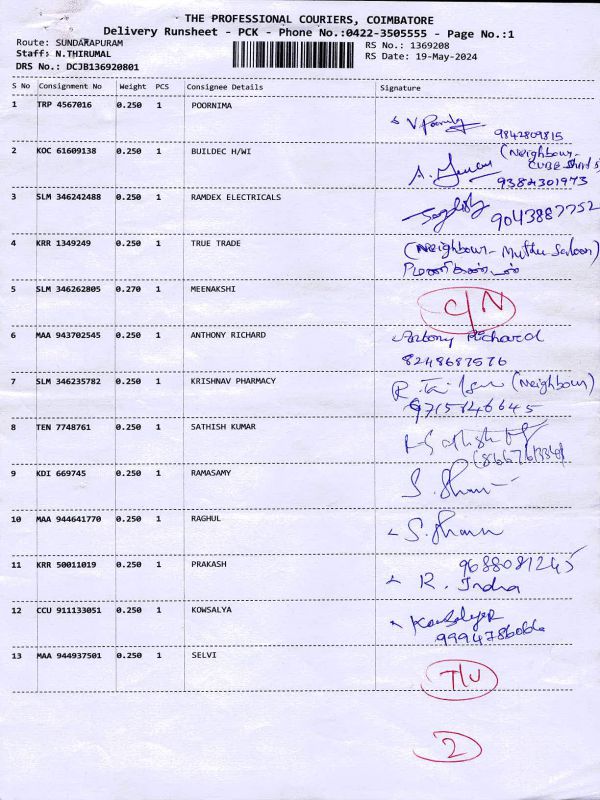 THE PROFESSIONAL COURIERS, COIMBATORE
Delivery Runsheet - PCK - Phone No.:0422-3505555 - Page No.:1
Route: SUNDARAPURAM
Staff: N.THIRUMAL
DRS No.: DCJB136920801
RS No.: 1369208
RS Date: 19-May-2024
S No Consignment No Weight PCS Consignee Details Signature
1 TRP 4567016 0.250 1 POORNIMA
9842809815
2 KOC 61609138 0.250 1 BUILDEC H/WI (Neighbour-
9384301973
3 SLM 346242488 0.250 1 RAMDEX ELECTRICALS
9043887752
4 KRR 1349249 0.250 1 TRUE TRADE (Neighbour- Muthu Saloon)
5 SLM 346262805 0.270 1 MEENAKSHI C/N
6 MAA 943702545 0.250 1 ANTHONY RICHARD Antony Richard
8248687576
7 SLM 346235782 0.250 1 KRISHNAV PHARMACY (Neighbour)
9715146645
8 TEN 7748761 0.250 1 SATHISH KUMAR
9 KDI 669745 0.250 1 RAMASAMY
10 MAA 944641770 0.250 1 RAGHUL
11 KRR 50011019 0.250 1 PRAKASH 9688081245
R. Indra
12 CCU 911133051 0.250 1 KOWSALYA Kowsalya
13 MAA 944937501 0.250 1 SELVI T/U
2